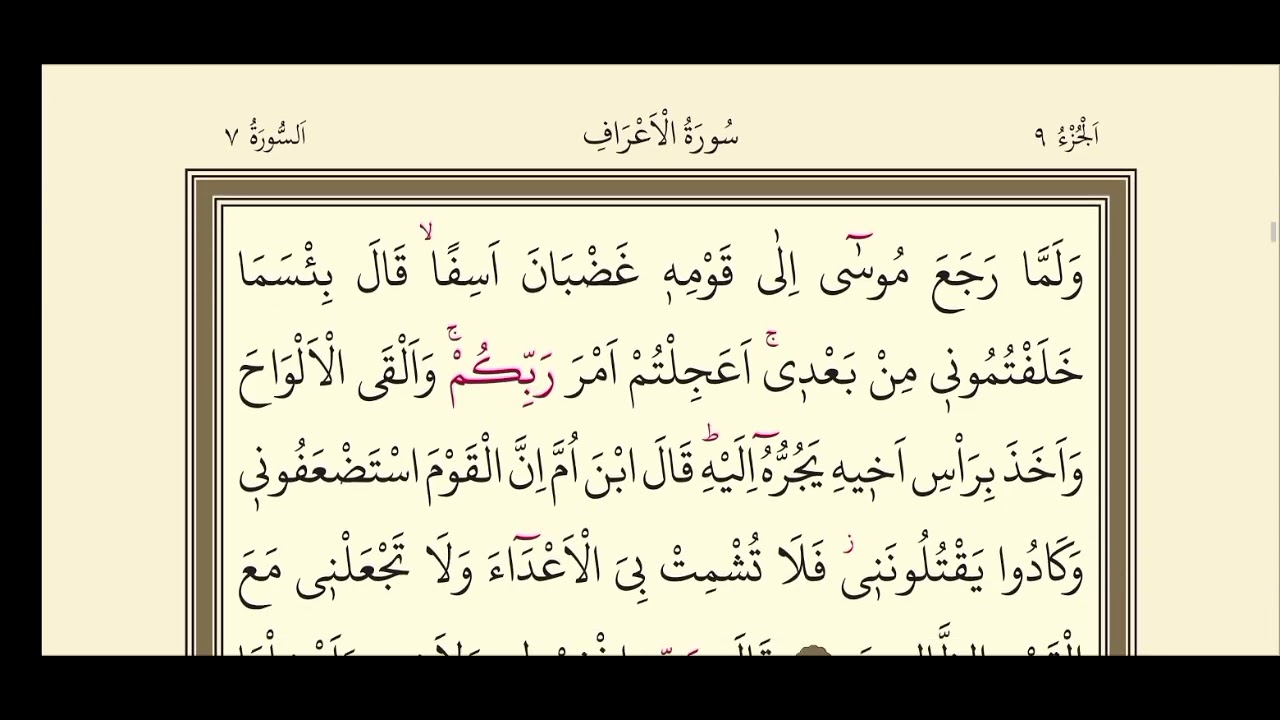 اَلْجُزْءُ ٩ سُورَةُ الْاَعْرَافِ اَلسُّورَةُ ٧
وَلَمَّا رَجَعَ مُوسٰٓى اِلٰى قَوْمِهٖ غَضْبَانَ اَسِفًاۙ قَالَ بِئْسَمَا
خَلَفْتُمُونٖي مِنْ بَعْدٖيۚ اَعَجِلْتُمْ اَمْرَ رَبِّكُمْۚ وَاَلْقَى الْاَلْوَاحَ
وَاَخَذَ بِرَاْسِ اَخٖيهِ يَجُرُّهُٓ اِلَيْهِؕ قَالَ ابْنَ اُمَّ اِنَّ الْقَوْمَ اسْتَضْعَفُونٖي
وَكَادُوا يَقْتُلُونَنٖيؗ فَلَا تُشْمِتْ بِيَ الْاَعْدَٓاءَ وَلَا تَجْعَلْنٖي مَعَ